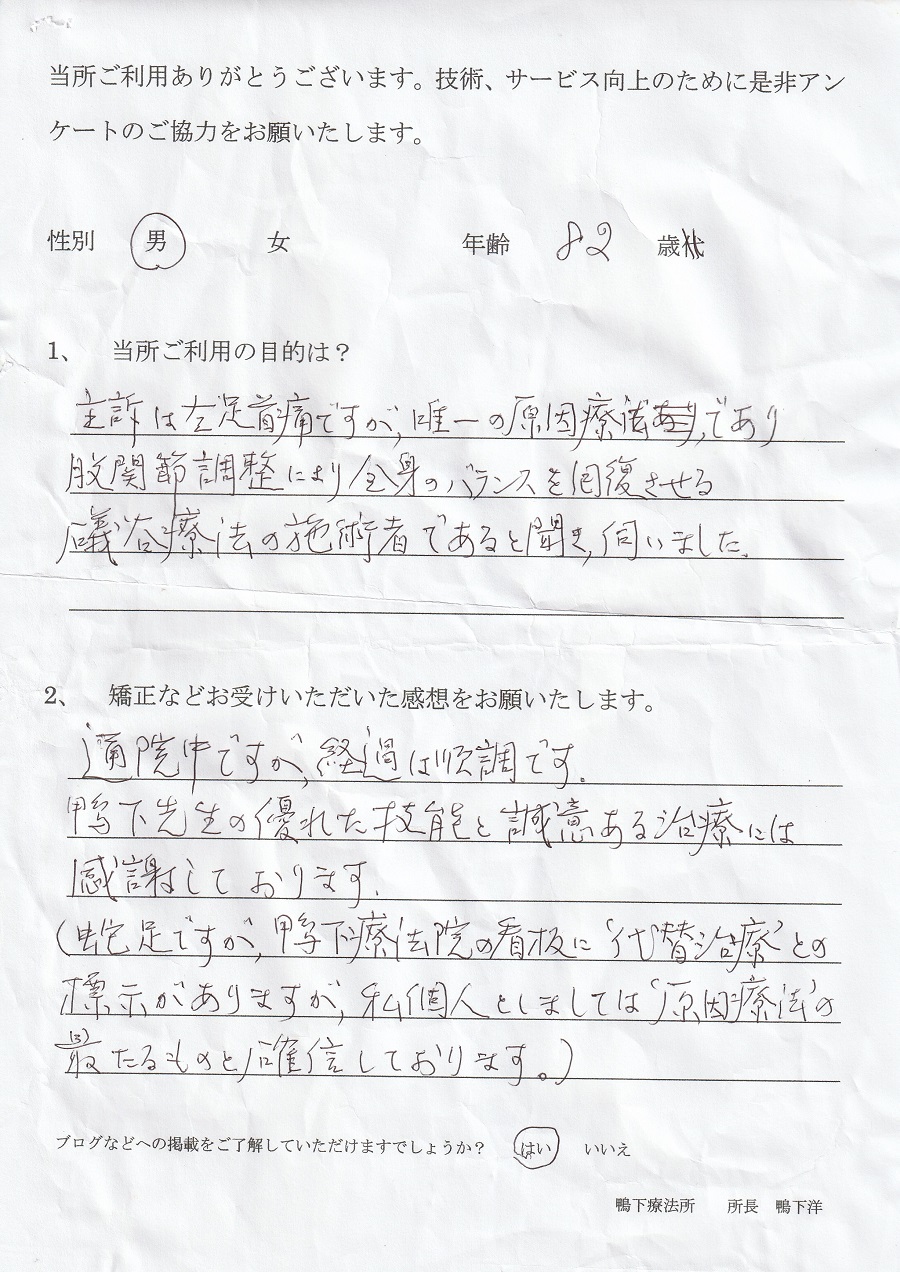 当所ご利用ありがとうございます。技術、サービス向上のために是非アン
ケートのご協力をお願いたします。
性別 男 女 年齢 82 歳
1、 当所ご利用の目的は？
主訴は左足首痛ですが、唯一の原因療法であり
股関節調整により全身のバランスを回復させる
礒谷療法の施術者であると聞き、伺いました。
2、 矯正などお受けいただいた感想をお願いたします。
通院中ですが、経過は順調です。
鴨下先生の優れた技能と誠意ある治療には
感謝しております。
(蛇足ですが、鴨下療法院の看板に‘代替治療’との
標示がありますが、私個人としましては‘原因療法’の
最たるものと確信しております。)
ブログなどへの掲載をご了解していただけますでしょうか？ はい いいえ
鴨下療法所 所長 鴨下洋